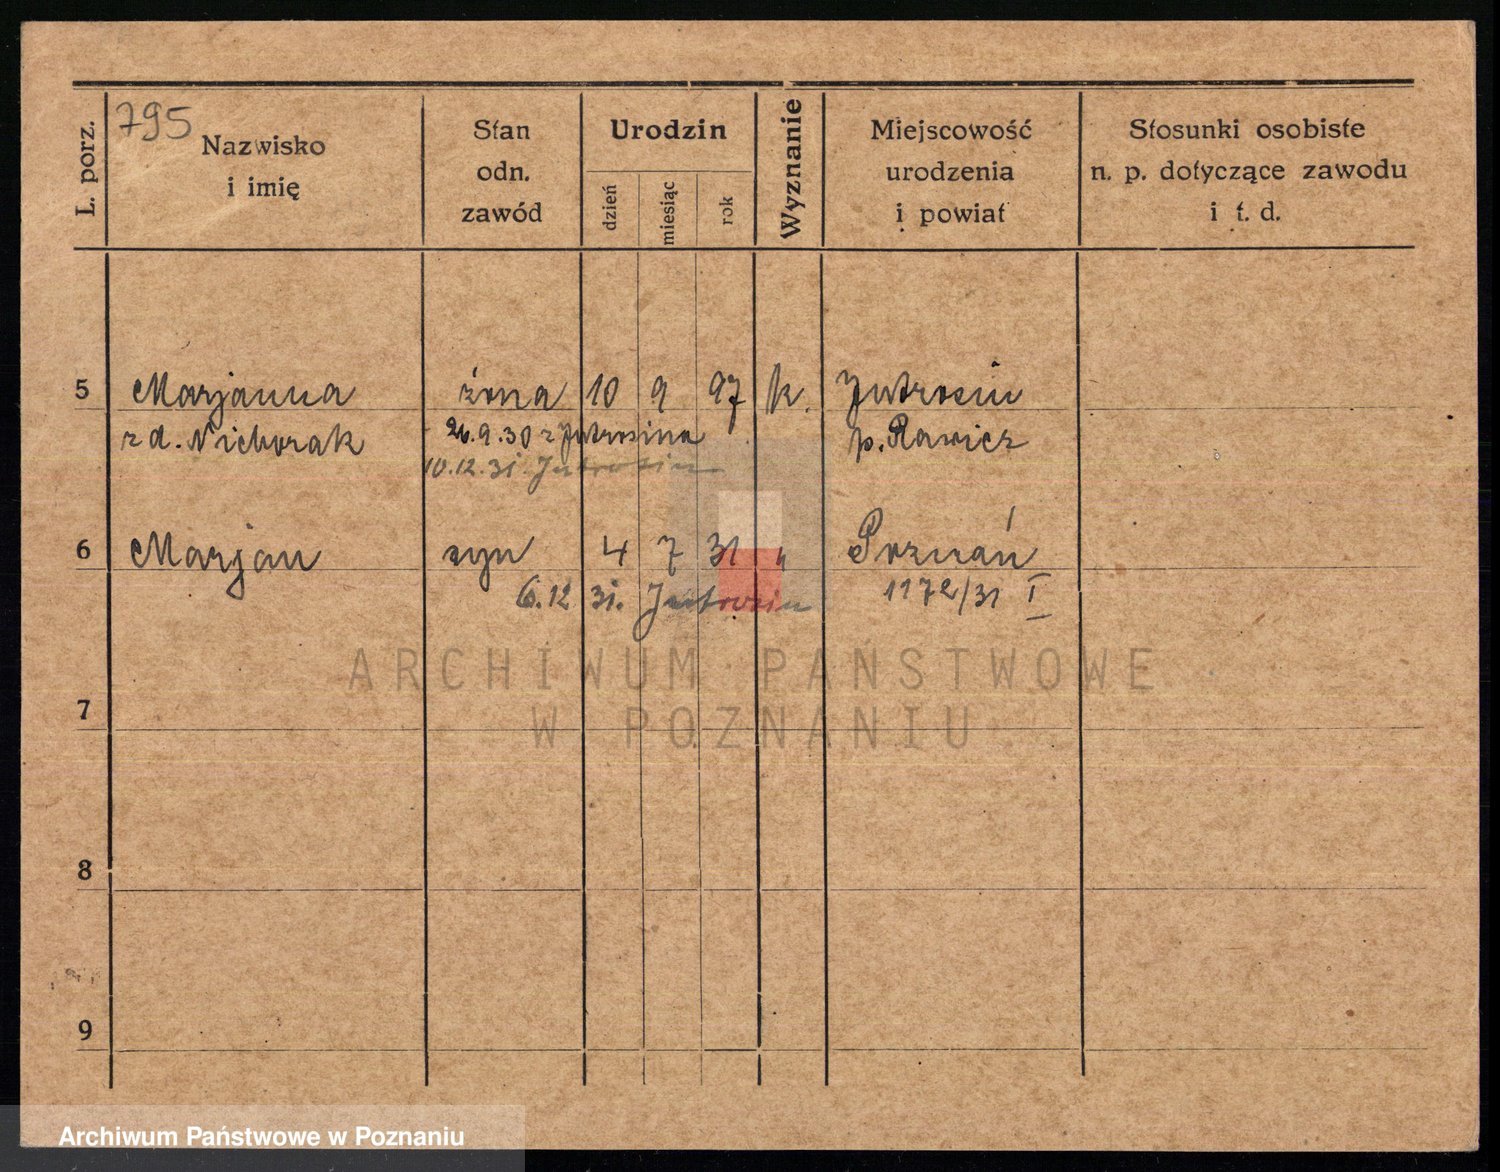 795
L. porz.
Nazwisko
i imię
Stan
odn.
zawód
Urodzin
dzień
miesiąc
rok
Wyznanie
Miejscowość
urodzenia
i powiat
Stosunki osobiste
n. p. dotyczące zawodu
i t. d.
5 Marjanna żona 10 9 97 k. Jutrosin
z d. Nieborak 26.9.30 z Jutrosina p. Rawicz
10.12.31. Jutrosin
6 Marjan syn 4 7 31 " Poznań
6.12 31. Jutrosin 1172/31 I
ARCHIWUM PAŃSTWOWE
7
W POZNANIU
8
9
Archiwum Państwowe w Poznaniu